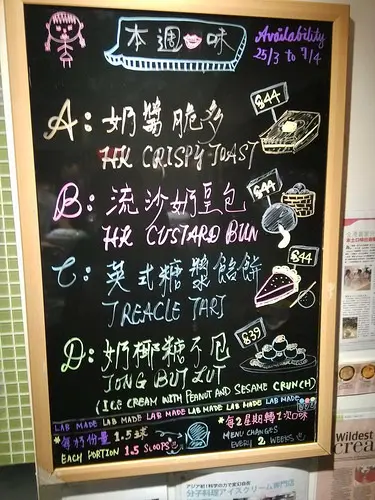 本週口味
Availability
25/3 to 7/4
A: 奶醬脆多
HK CRISPY TOAST
$44
B: 流沙奶皇包
HK CUSTARD BUN
$44
C: 英式糖漿餡餅
TREACLE TART
$44
D: 奶椰糖不甩
TONG BUT LUT
$39
(ICE CREAM WITH PEANUT AND SESAME CRUNCH)
LAB MADE LAB MADE LAB MADE LAB MADE LAB MADE LAB MADE
*每杯份量 1.5球
EACH PORTION 1.5 SCOOPS
*每2星期轉1次口味
MENU CHANGES
EVERY 2 WEEKS
Wildest
crea
分子料理アイスクリーム専門店